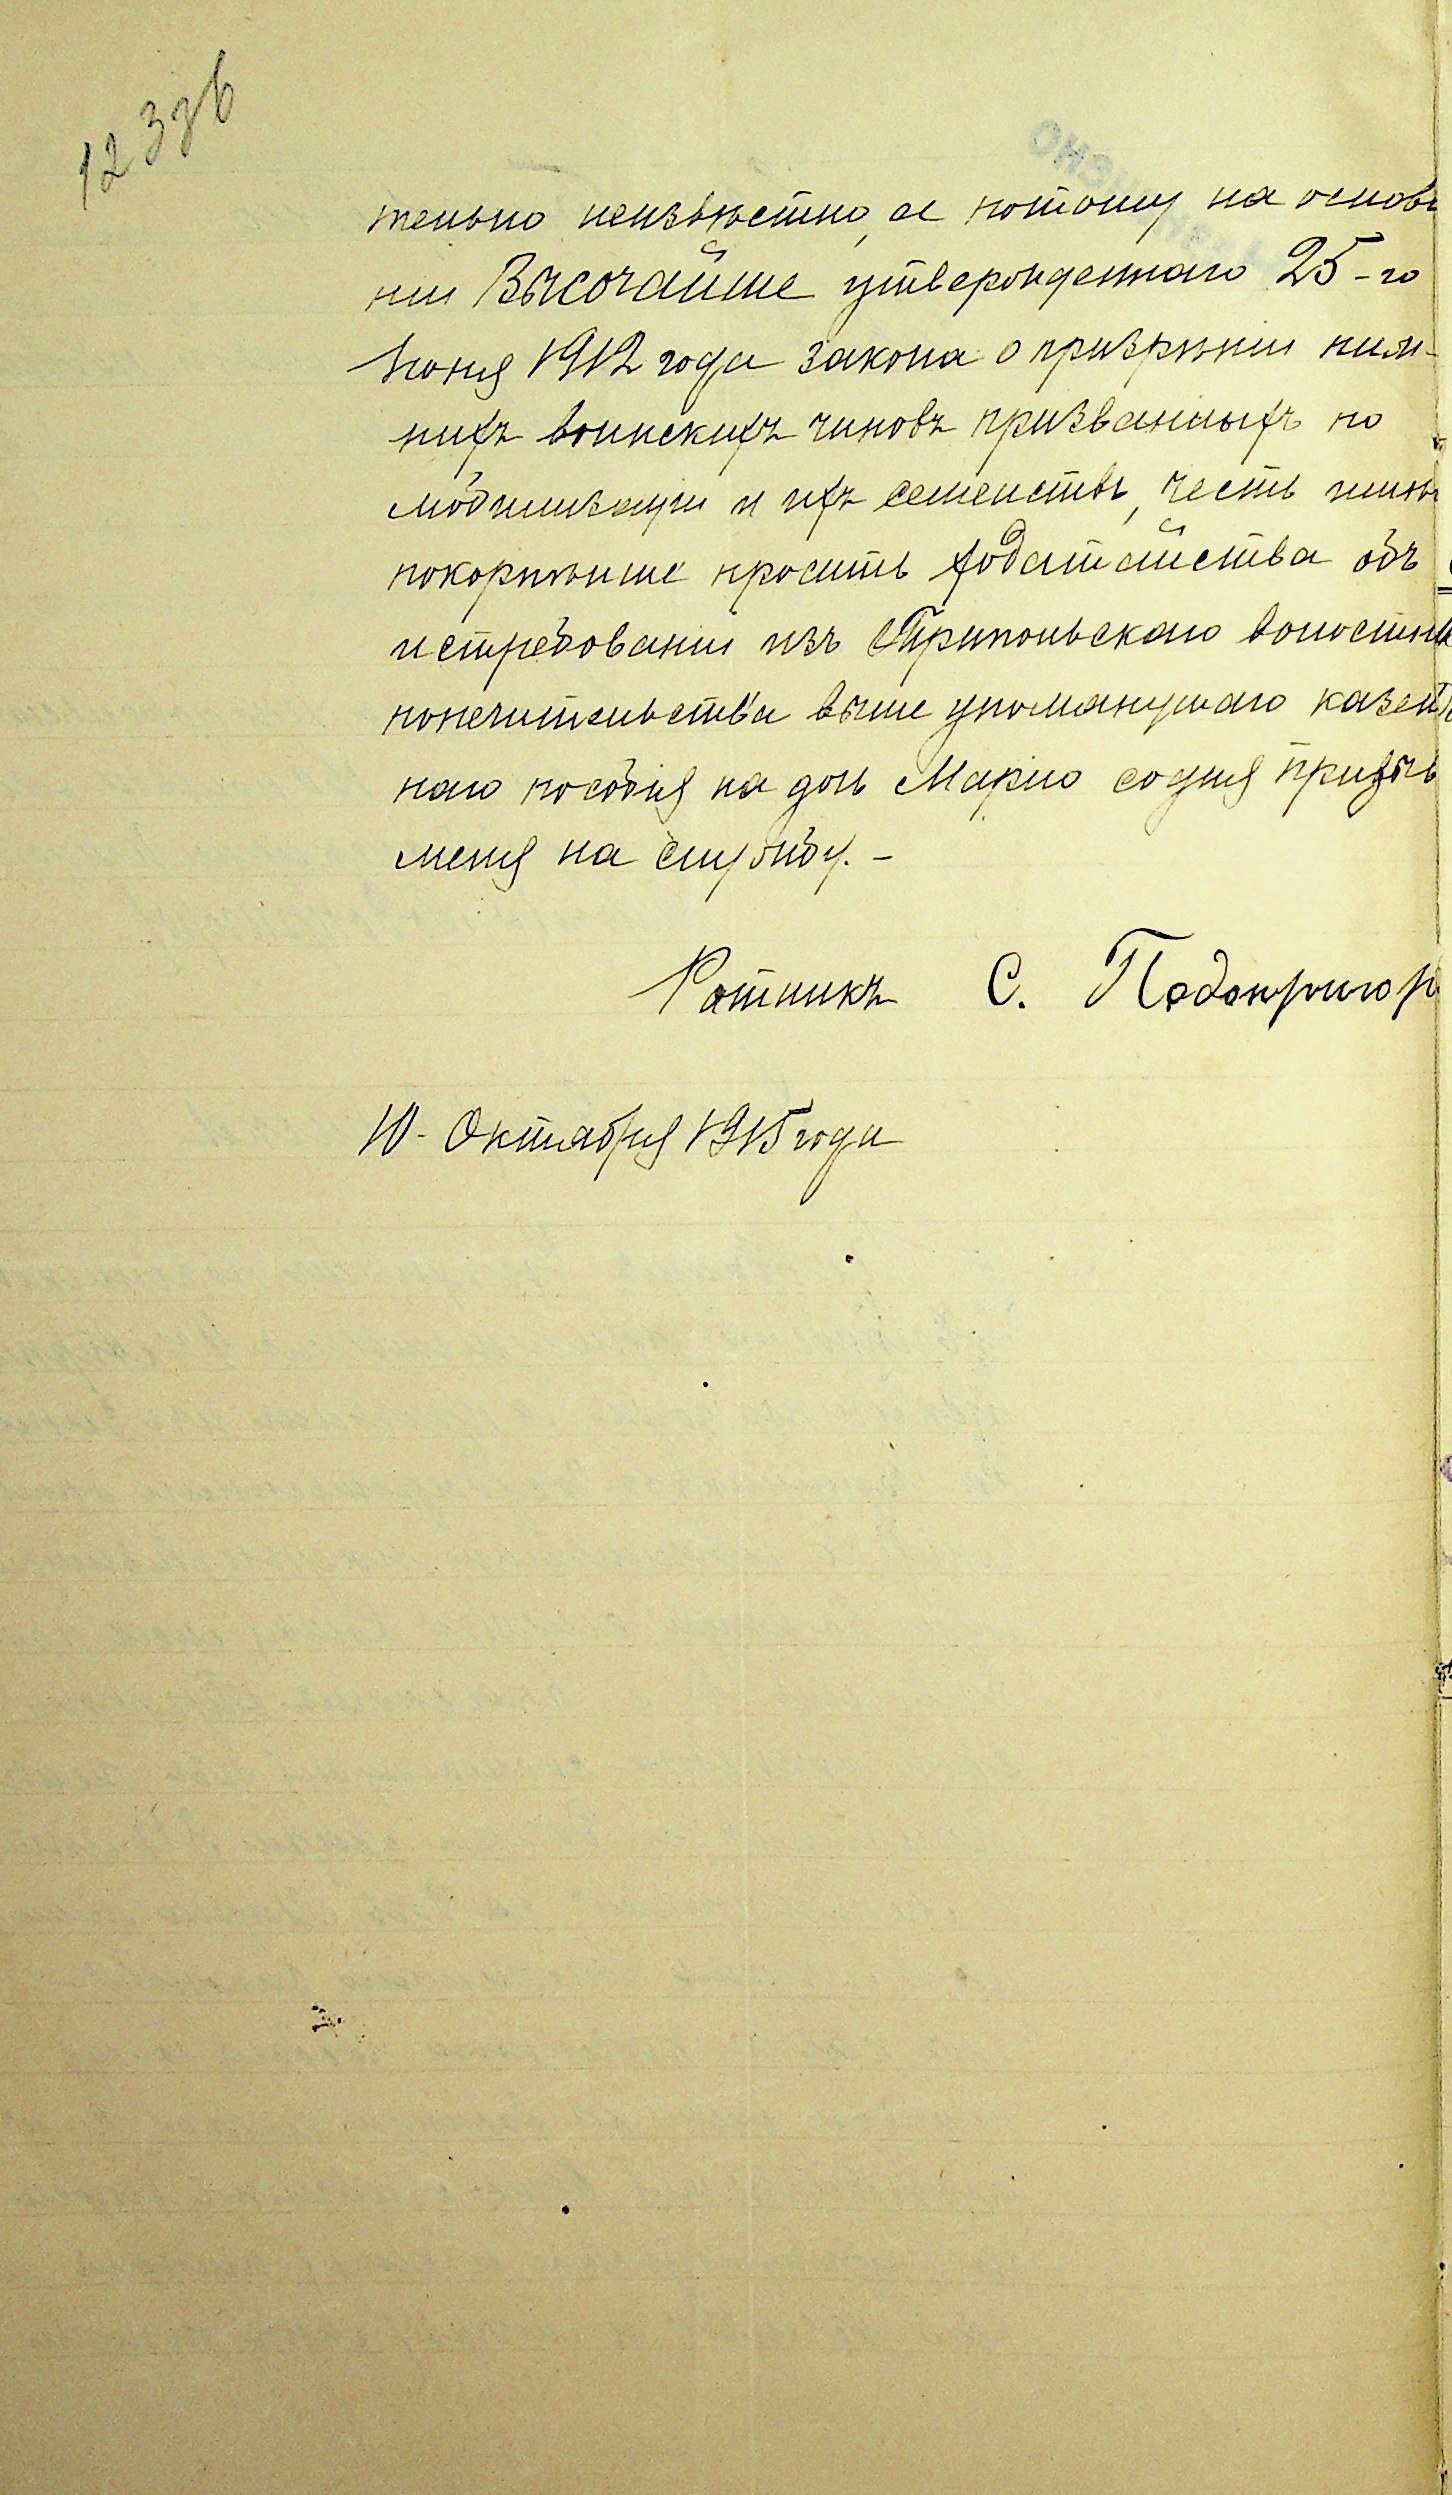 12 зgв
тельно неизвѣстно, а потому на основа
нии Высочайше утвержденнаго 25-го
Iюня 1912 года закона о призрѣнiи ниж-
нихъ воинскихъ чиновъ призванныхъ по
мобилизацiи и ихъ семействъ, честь имѣю
покорнѣйше просить ходатайства объ
истребованiи изъ Трипольскаго волостн
попечительства выше упомянутаго казен
наго пособiя на дочь Марiю со дня призыв
меня на службу. -
Ратникъ С. Подопригор
10 - Октября 1915 года